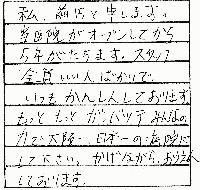 私、前田と申します。
当医院がオープンしてから
5年がたちます。スタッフ
全員いい人ばかりで、
いつもかんしんしております
もっともっとガンバッテみんなの
力で大阪一、日本一の医院に
して下さい。かげながら、おうえん
しております。